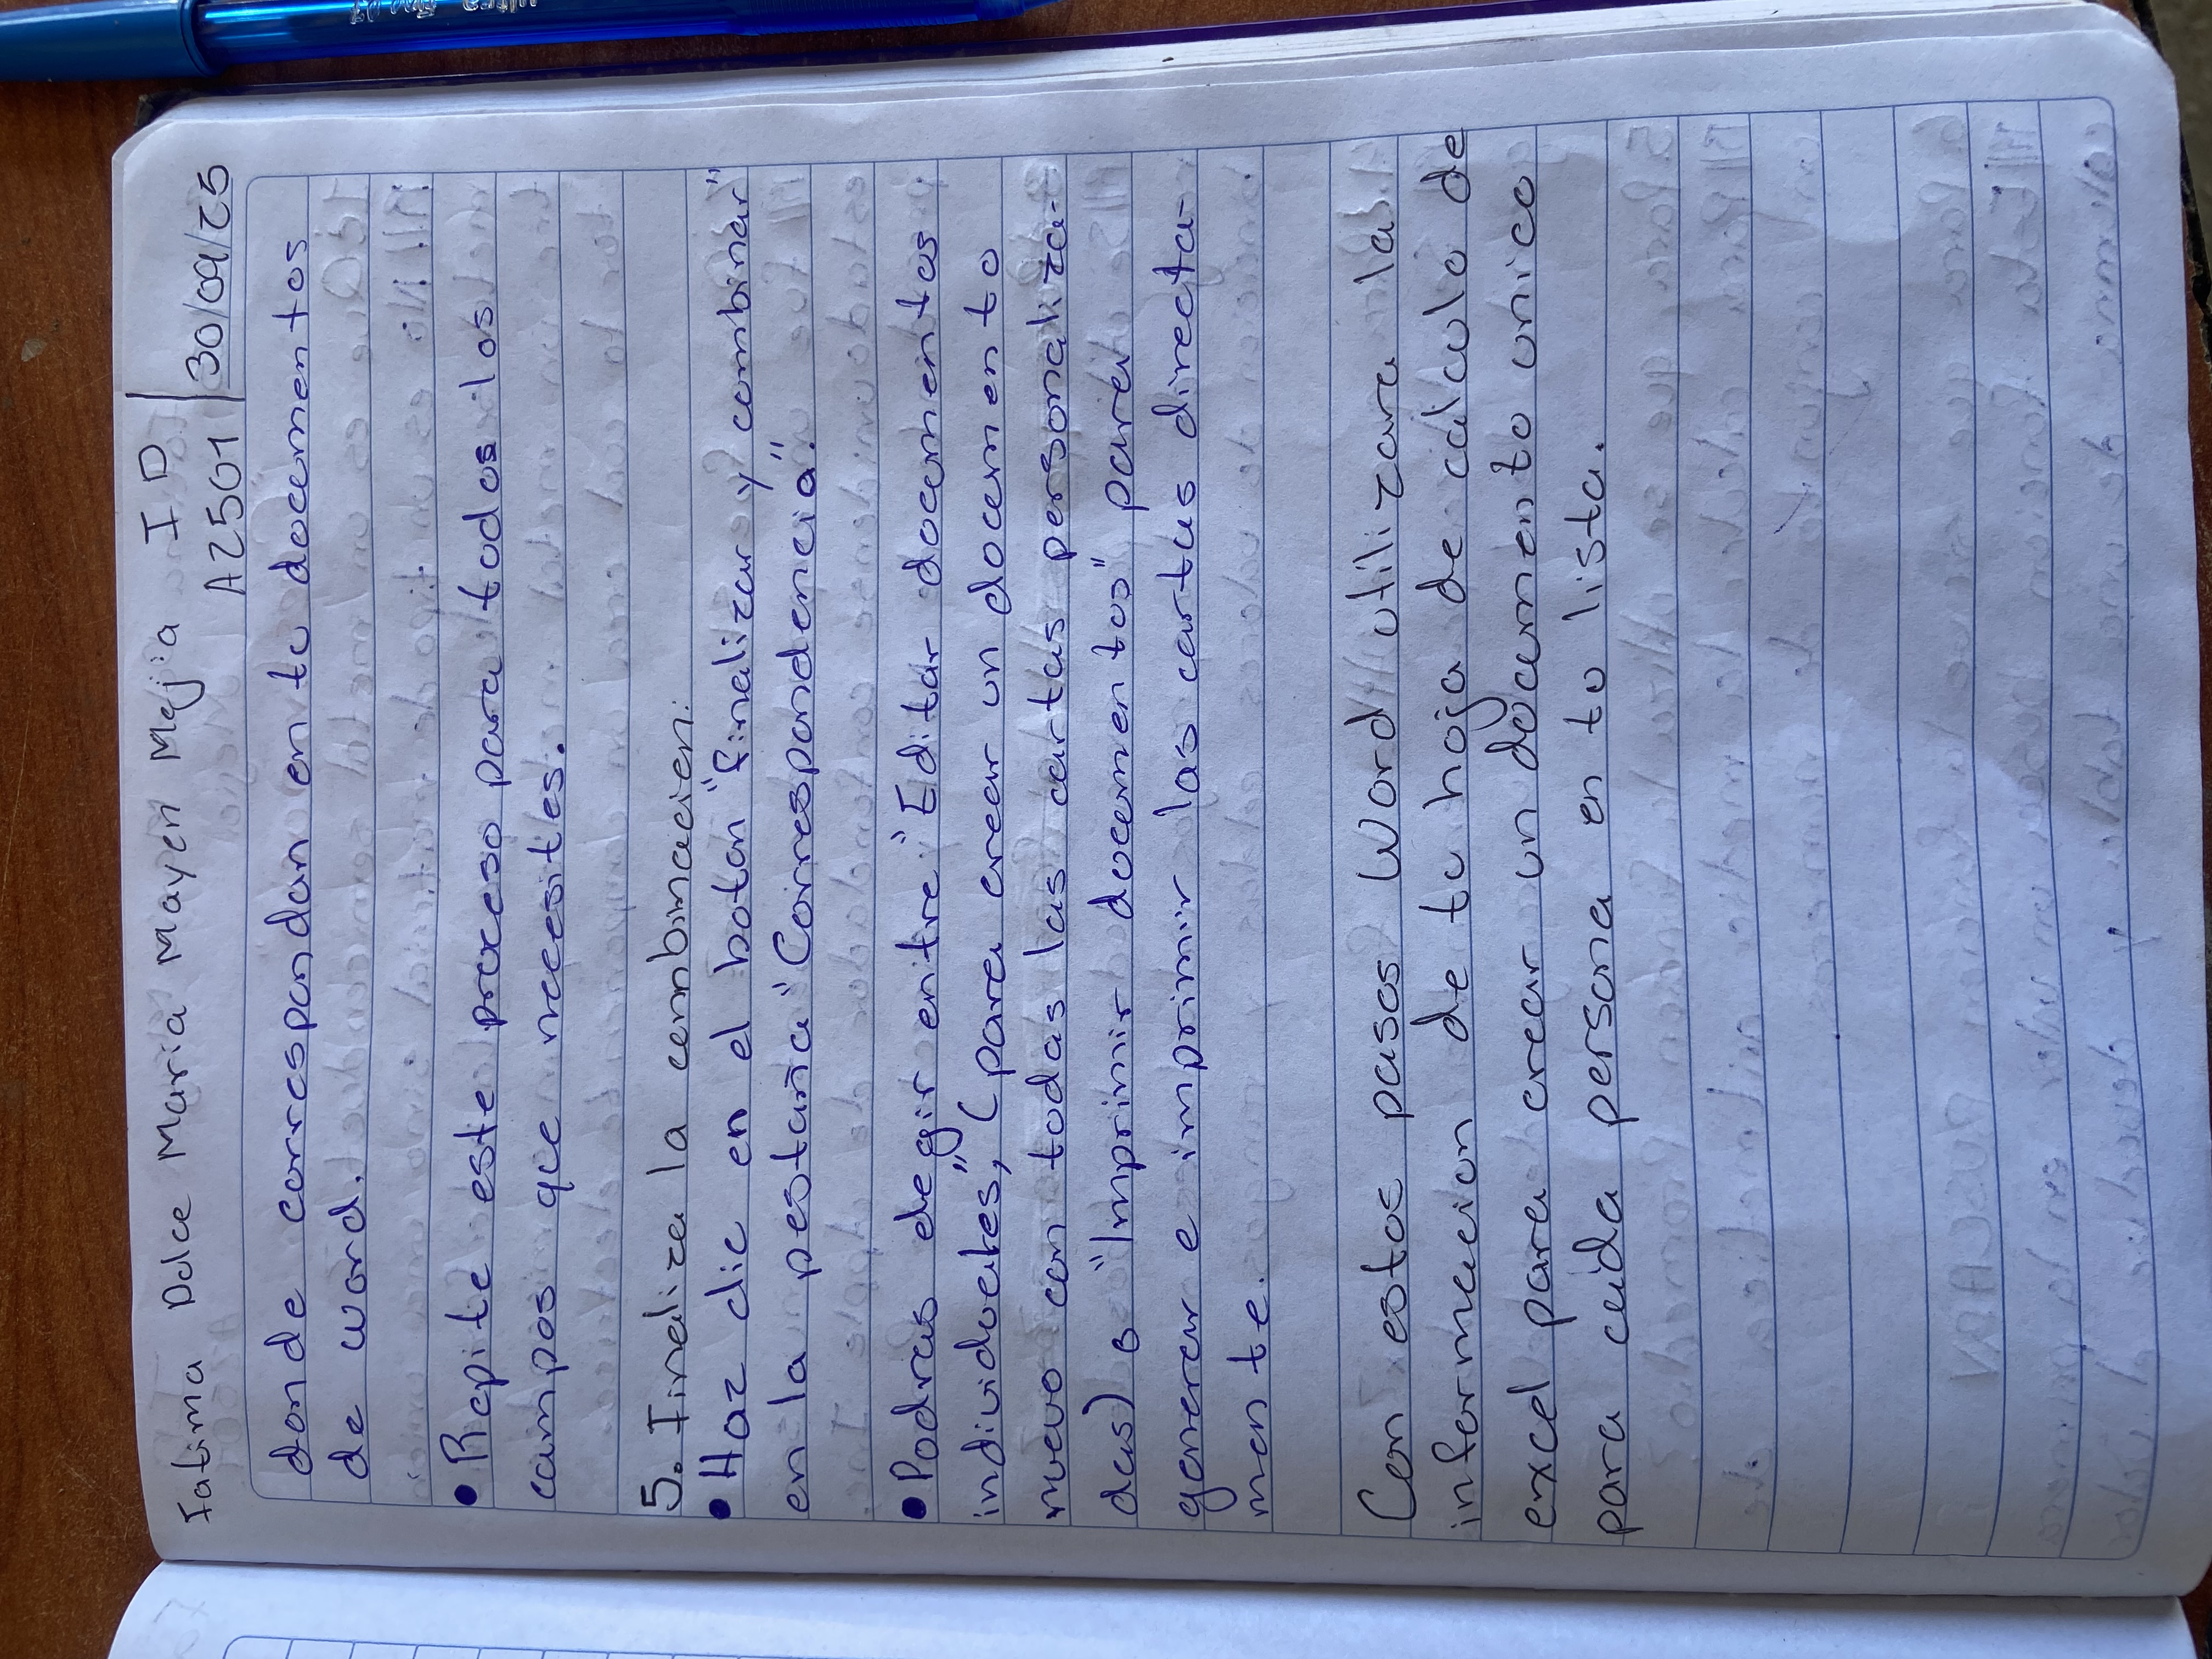 Fatima Dulce Maria Mayen Mejia ID
A2501 30/09/25
donde correspondan en tu documentos
de word.
• Repite este proceso para todos los
campos que necesites.
5. Finaliza la combinacion:
• Haz clic en el boton "finalizar y combinar"
en la pestaña "Correspondencia".
• Podras elegir entre "Editar documentos
individuales", (para crear un documento
nuevo con todas las cartas personaliza-
das) o "Imprimir documentos" para
generar e imprimir las cartas directa-
mente.
Con estos pasos Word utilizara la
informacion de tu hoja de calculo de
excel para crear un documento unico
para cada persona en tu lista.